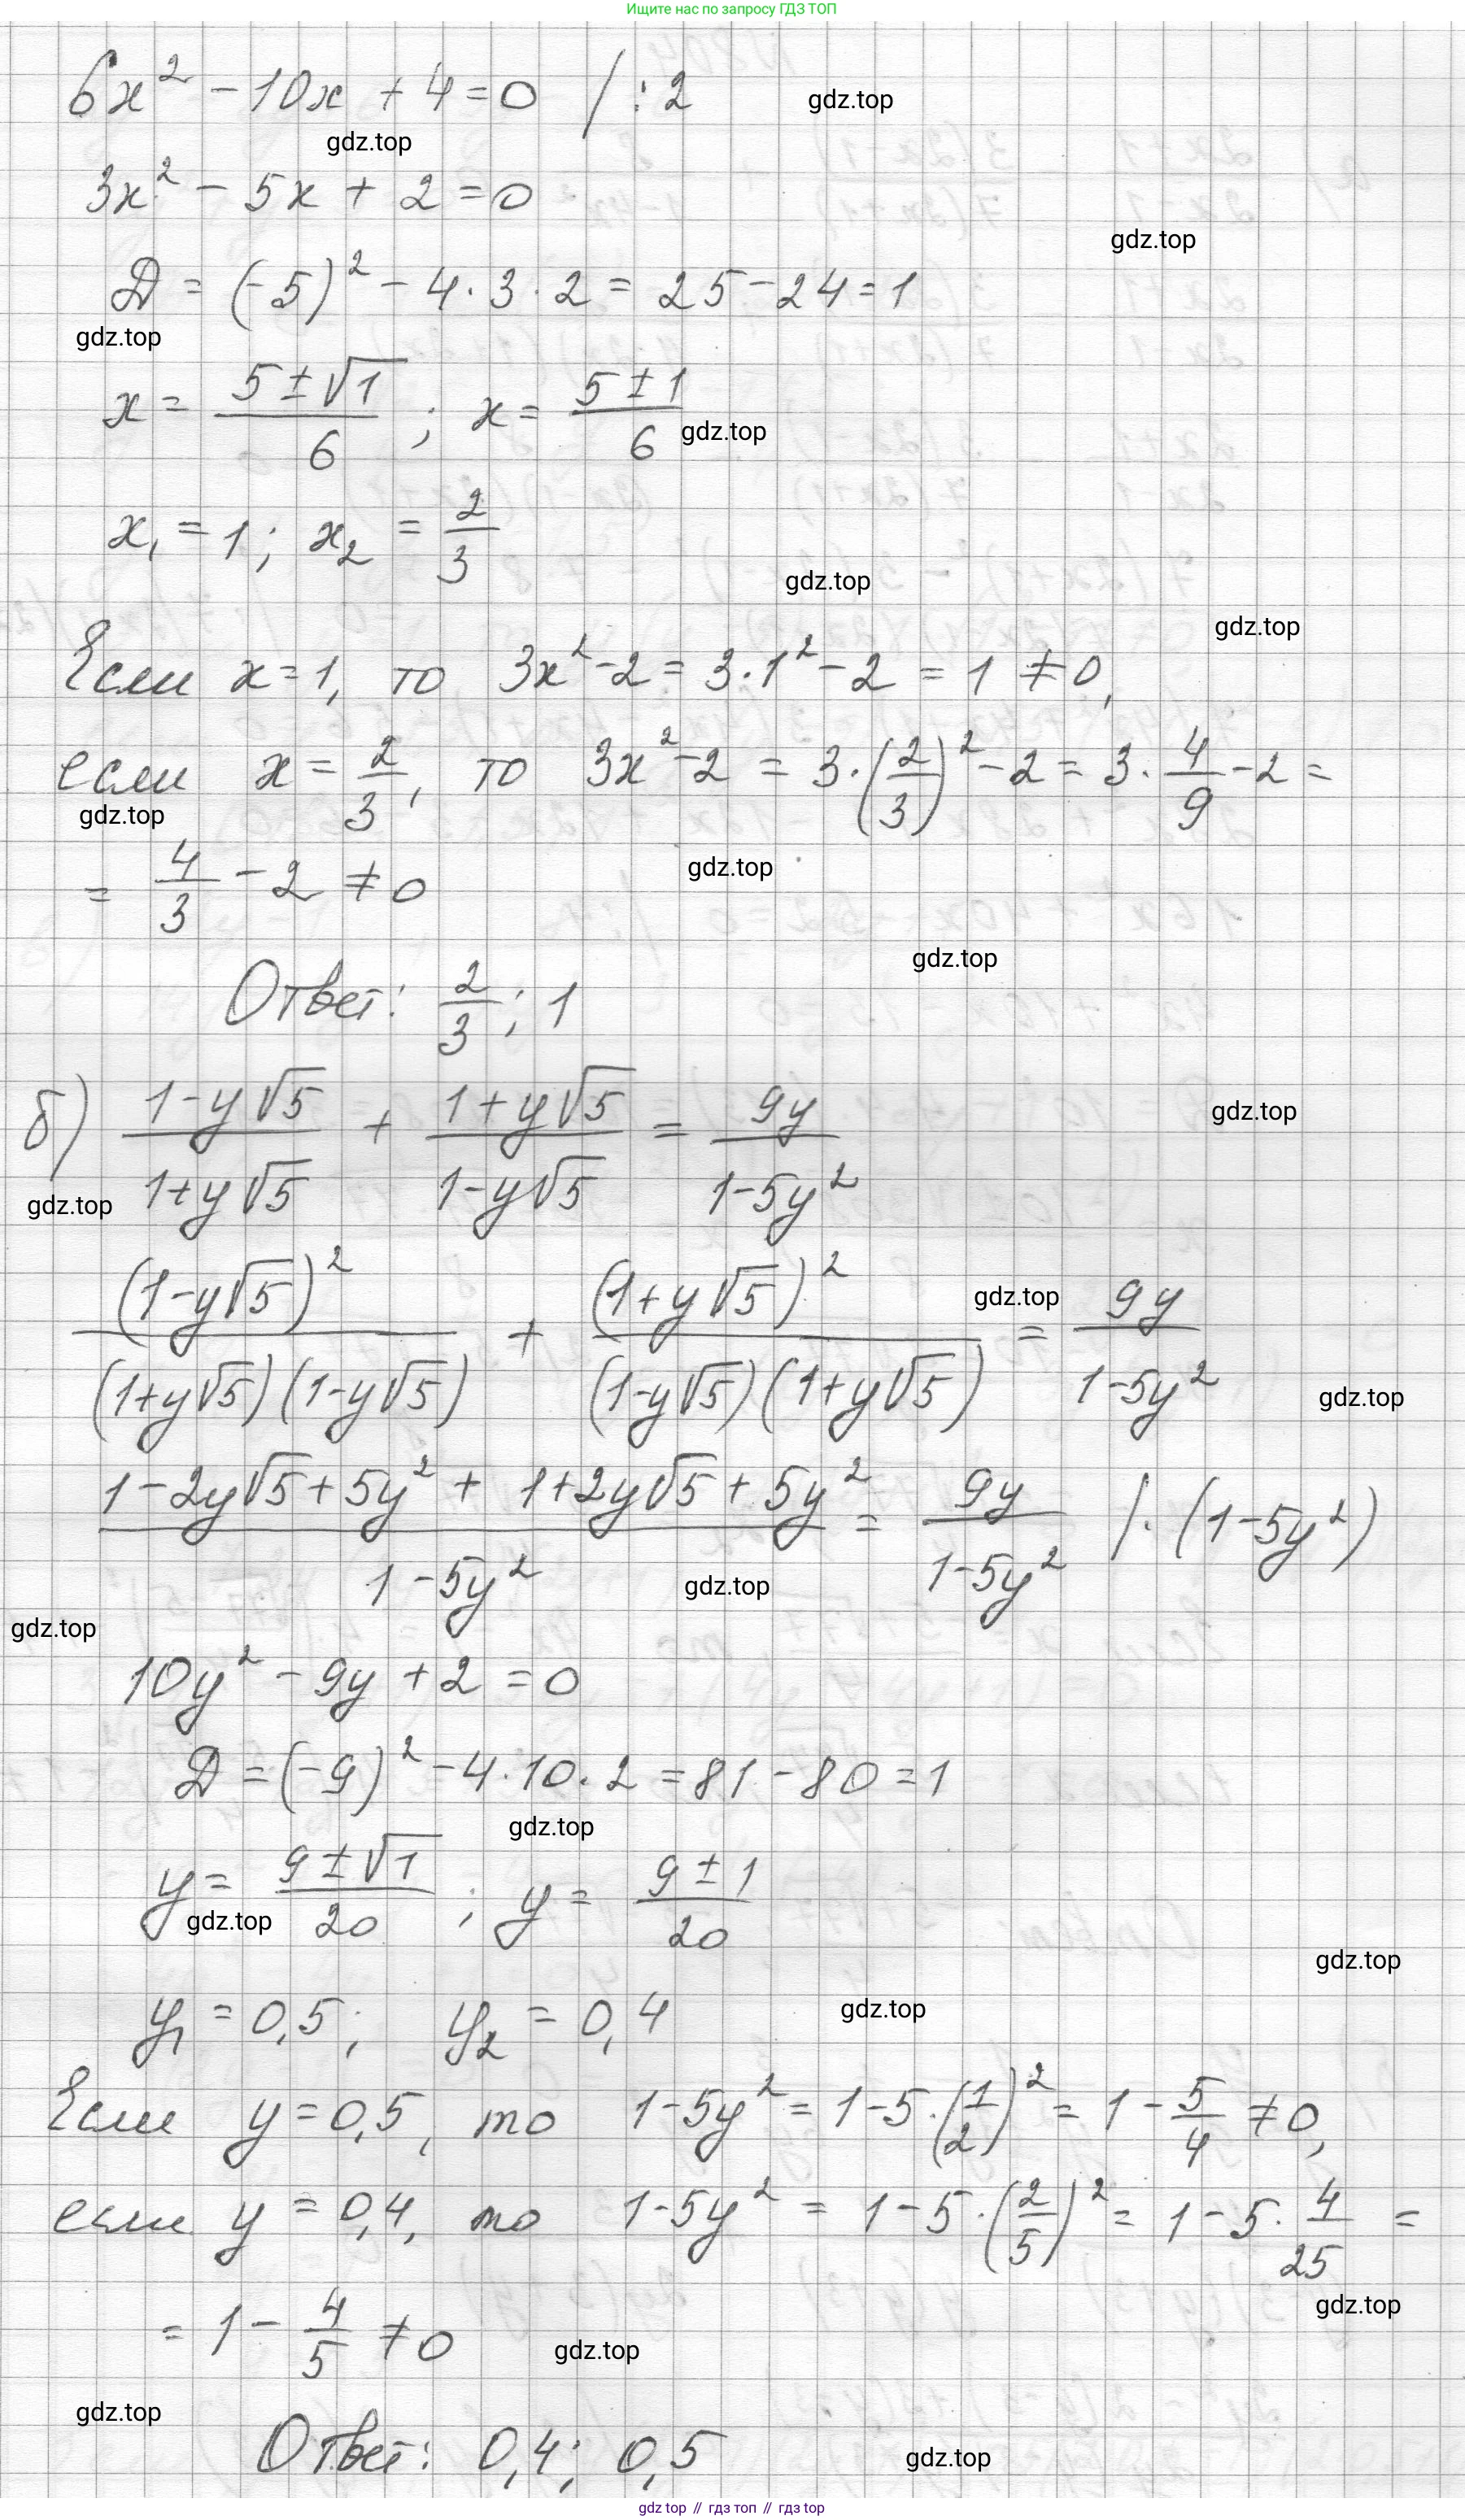 Ищите нас по запросу ГДЗ ТОП
6x² - 10x + 4 = 0 / :2
gdz.top
gdz.top
3x² - 5x + 2 = 0
gdz.top
Д = (-5)² - 4·3·2 = 25 - 24 = 1
gdz.top
x = (5 ± √1)/6 ; x = (5 ± 1)/6
gdz.top
x₁ = 1; x₂ = 2/3
gdz.top
gdz.top
Если x = 1, то 3x² - 2 = 3·1² - 2 = 1 ≠ 0,
если x = 2/3, то 3x² - 2 = 3·(2/3)² - 2 = 3·4/9 - 2 =
gdz.top
gdz.top
= 4/3 - 2 ≠ 0
gdz.top
Ответ: 2/3; 1
б) (1 - y√5)/(1 + y√5) + (1 + y√5)/(1 - y√5) = 9y/(1 - 5y²)
gdz.top
gdz.top
(1 - y√5)²/((1 + y√5)(1 - y√5)) + (1 + y√5)²/((1 - y√5)(1 + y√5)) = 9y/(1 - 5y²)
gdz.top
gdz.top
(1 - 2y√5 + 5y² + 1 + 2y√5 + 5y²)/(1 - 5y²) = 9y/(1 - 5y²) /·(1 - 5y²)
gdz.top
gdz.top
10y² - 9y + 2 = 0
Д = (-9)² - 4·10·2 = 81 - 80 = 1
gdz.top
y = (9 ± √1)/20 ; y = (9 ± 1)/20
gdz.top
gdz.top
gdz.top
y₁ = 0,5; y₂ = 0,4
Если y = 0,5, то 1 - 5y² = 1 - 5·(1/2)² = 1 - 5/4 ≠ 0,
если y = 0,4, то 1 - 5y² = 1 - 5·(2/5)² = 1 - 5·4/25 =
gdz.top
= 1 - 4/5 ≠ 0
gdz.top
gdz.top
Ответ: 0,4; 0,5
gdz.top
gdz.top // гдз топ // гдз top